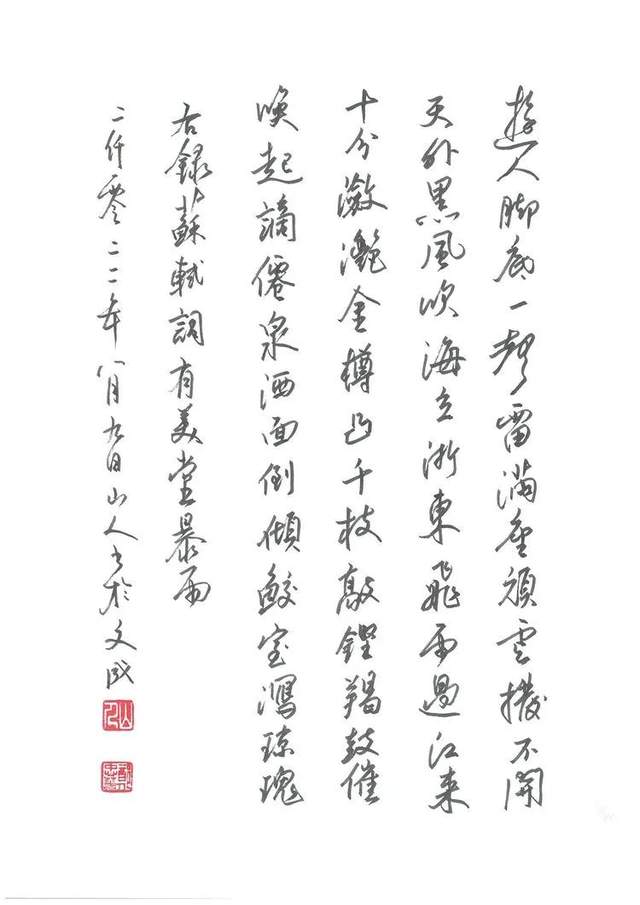 遊人脚底一聲雷滿座頑雲撥不開
天外黑風吹海立浙東飛雨過江來
十分瀲灧金樽凸千枝敲鏗羯鼓催
喚起謫僊泉洒面倒傾鮫室瀉瓊瑰
右錄蘇軾詞有美堂暴雨
二仟零二二年八月九日山人書於文成
山人